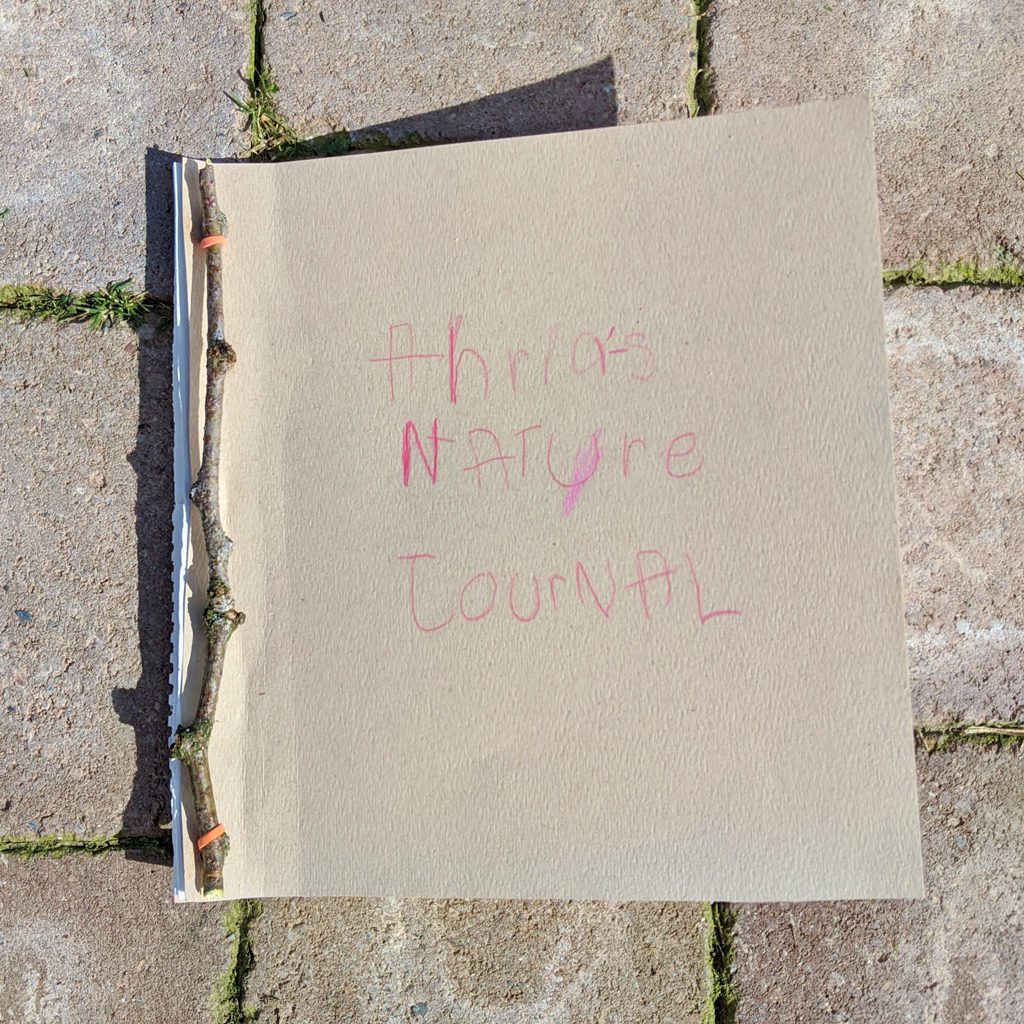 Ahria's
NATUre
JOUrNAL